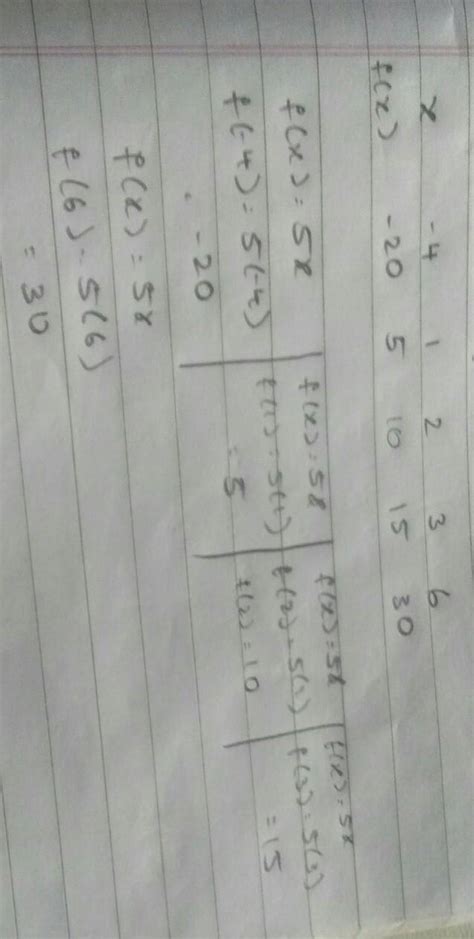 x -4 1 2 3 6
f(x) -20 5 10 15 30
f(x) = 5x
f(-4) = 5(-4)
-20
f(x) = 5x
f(1) = 5(1)
= 5
f(x) = 5x
f(2) = 5(2)
f(2) = 10
f(x) = 5x
f(3) = 5(3)
= 15
f(x) = 5x
f(6) - 5(6)
= 30